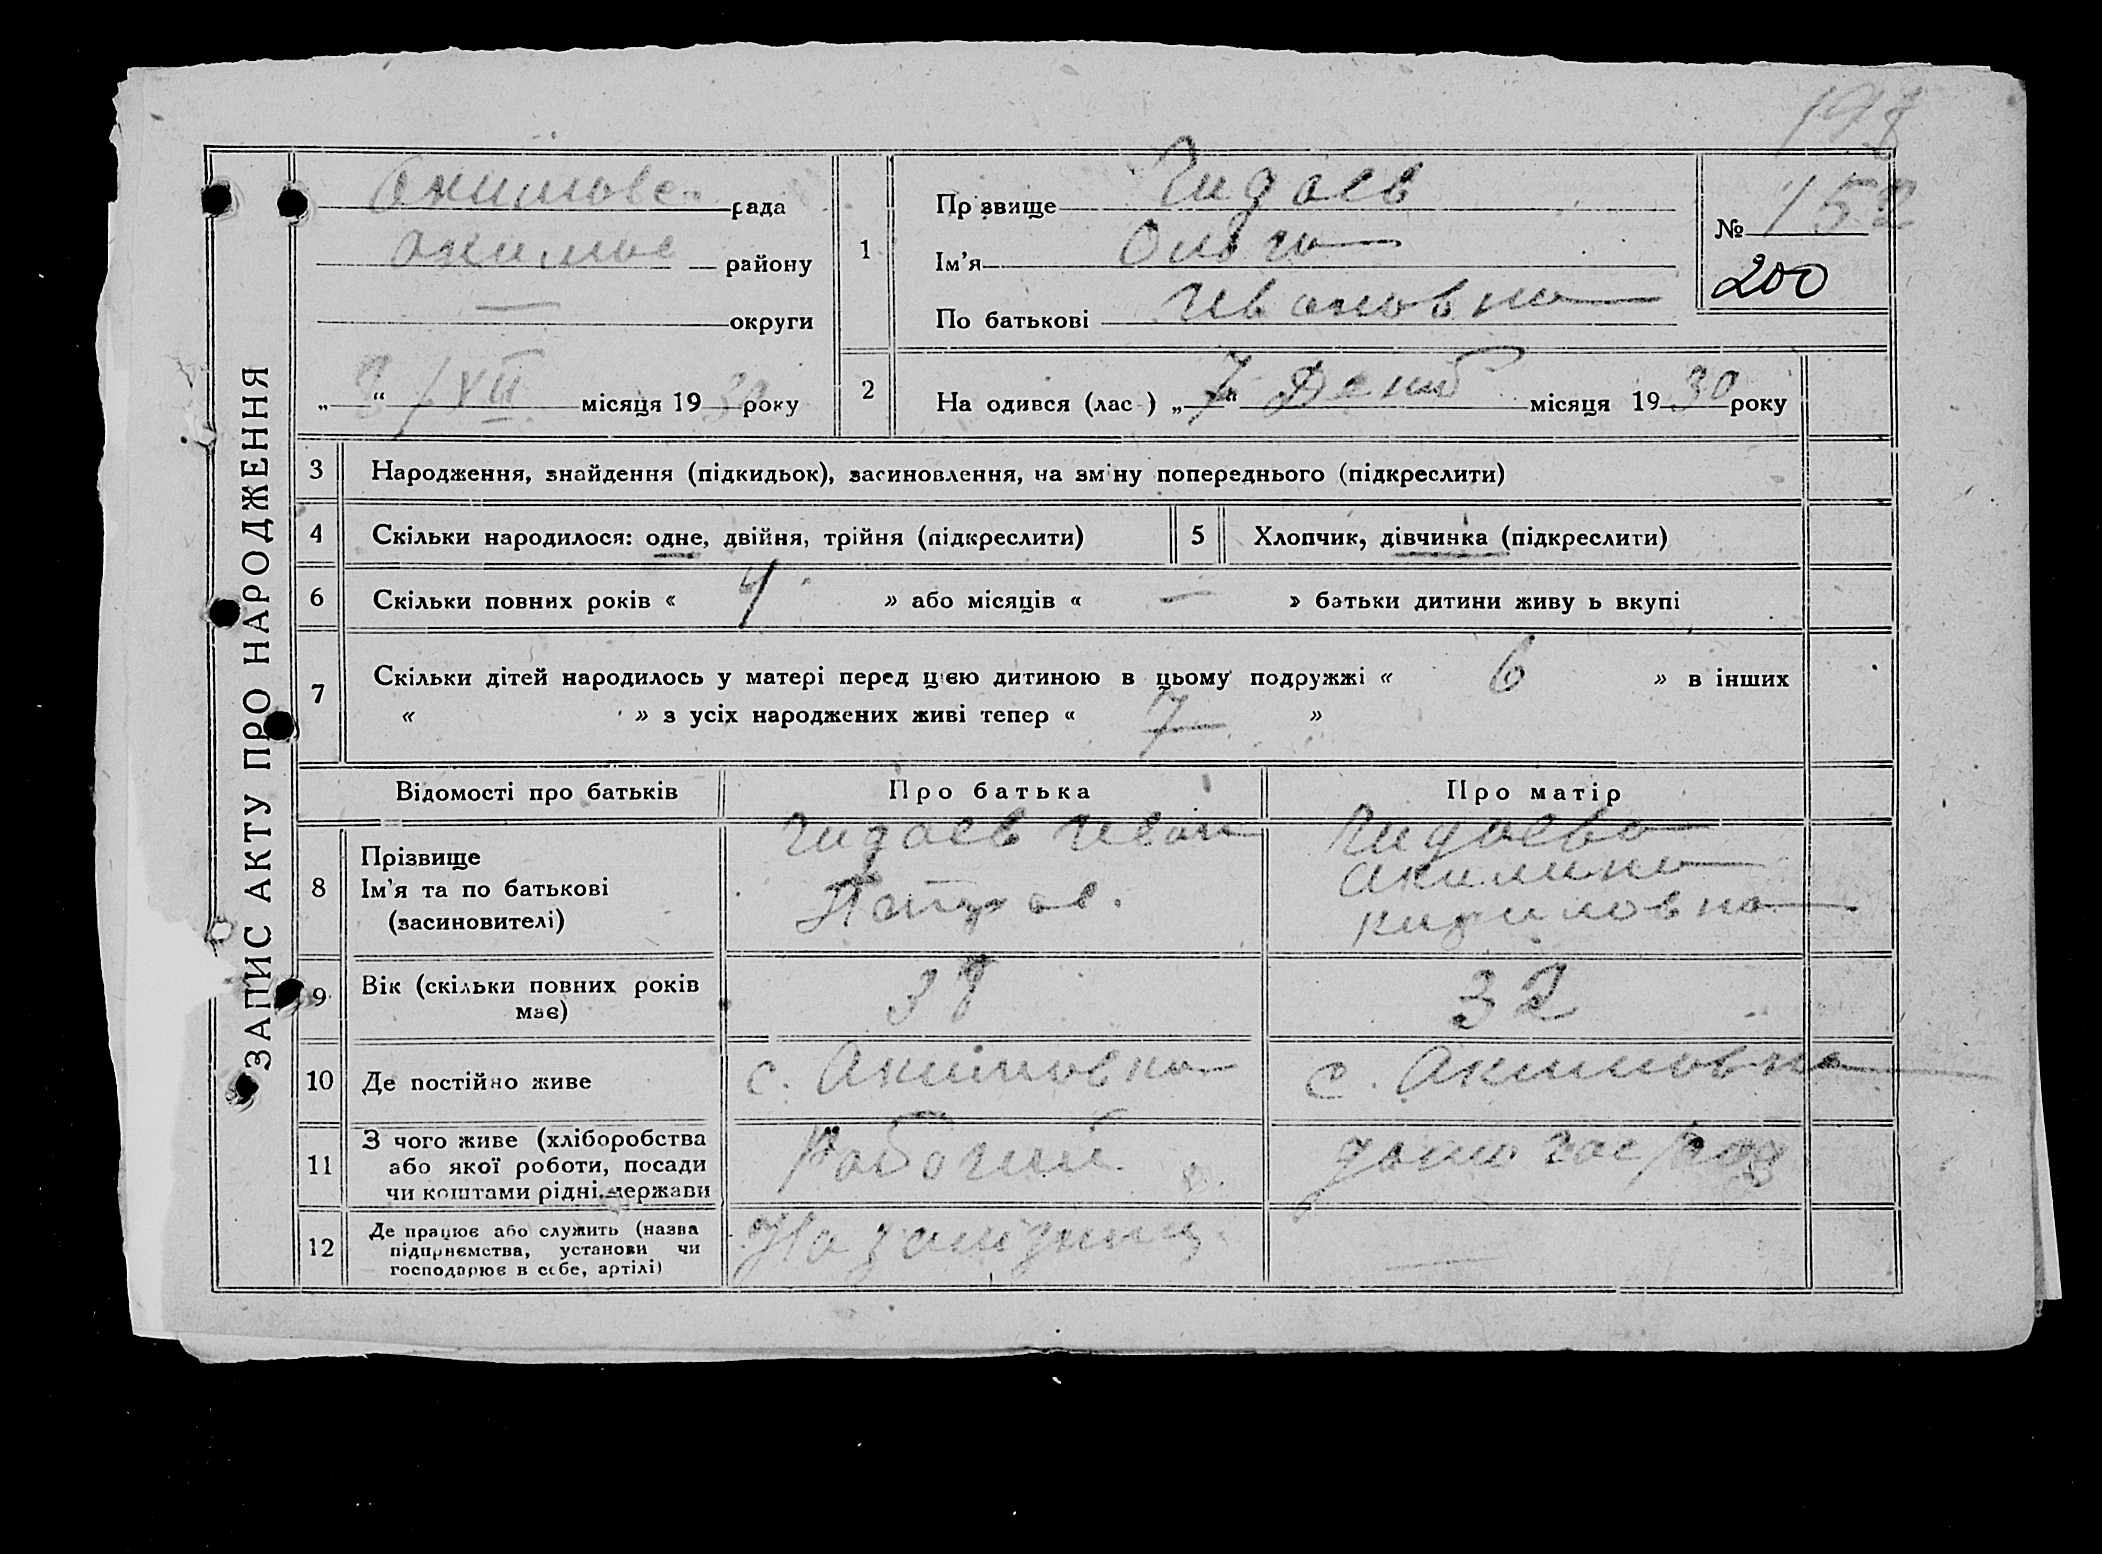 198
ЗАПИС АКТУ ПРО НАРОДЖЕННЯ
Акимовс. рада
Акимов району
— округи
„ 9 “ / XII місяця 19 30 року
1
Прізвище Гидаев
Ім’я Ольга
По батькові Ивановна
№ 152
200
2 На одився (лас ) „ 7 “ Декаб місяця 19 30 року
3 Народження, знайдення (підкидьок), засиновлення, на зміну попереднього (підкреслити)
4 Скільки народилося: одне, двійня, трійня (підкреслити) 5 Хлопчик, дівчинка (підкреслити)
6 Скільки повних років « » або місяців « — » батьки дитини живу ь вкупі
7 Скільки дітей народилось у матері перед цією дитиною в цьому подружжі « 6 » в інших
« » з усіх народжених живі тепер « 7 »
Відомості про батьків Про батька Про матір
8 Прізвище
Ім’я та по батькові
(засиновителі)
Гидаев Иван
Петров.
Гидаева
Акилина
Кириловна
9 Вік (скільки повних років
має)
38
32
10 Де постійно живе с. Акимовка с. Акимовка
11 З чого живе (хліборобства
або якої роботи, посади
чи коштами рідні, держави
Рабочий
12 Де працює або служить (назва
підприємства, установи чи
господарює в себе, артілі)
На —